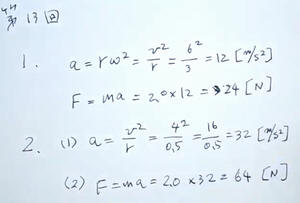 第13回
1. a = rω² = v²/r = 6²/3 = 12 [m/s²]
F = ma = 2.0×12 = 24 [N]
2. (1) a = v²/r = 4²/0.5 = 16/0.5 = 32 [m/s²]
(2) F = ma = 2.0×32 = 64 [N]